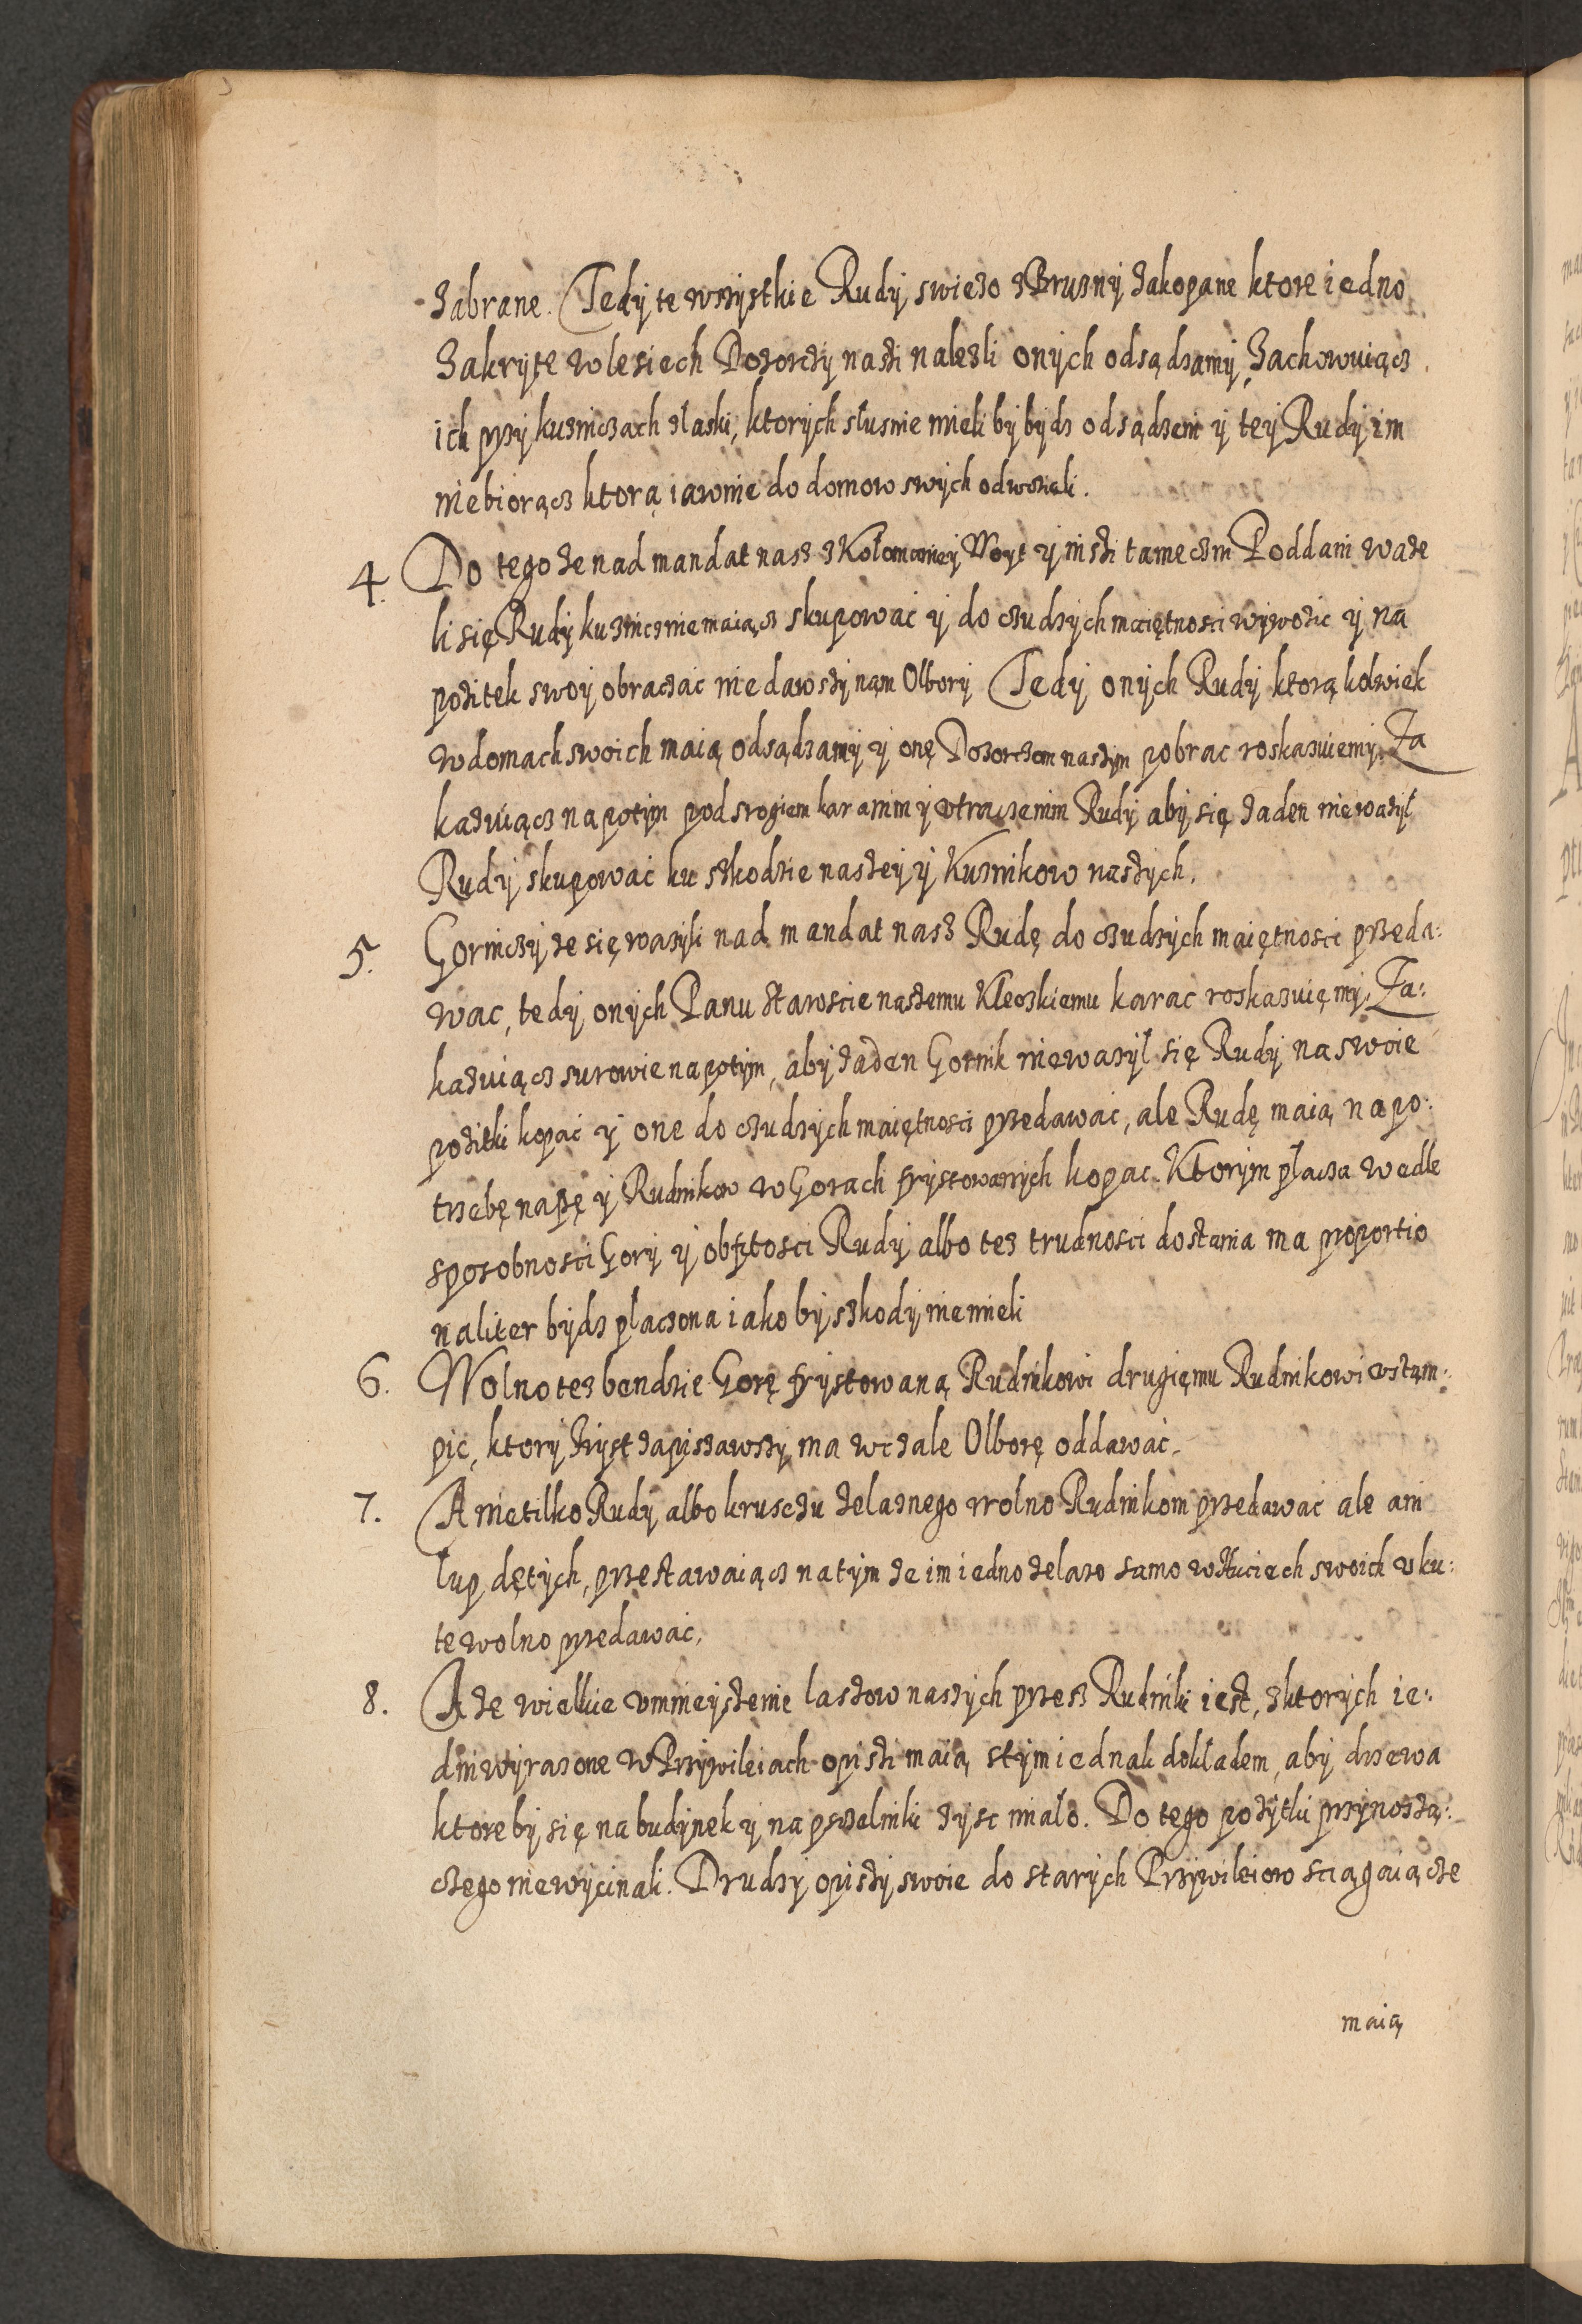 zabrane. Tedÿ te wszÿstkie Rudÿ swiezo z Bruznÿ zakopane ktore iedno
Zakrÿte w lesiech Dozorczÿ naszi nalezli onÿch odsądzamÿ, Zachowuiącz
ich przÿ kuzniczach z laski, ktorÿch slusnie mieli bÿ bÿdz odsądzeni ÿ teÿ Rudÿ im
niebiorącz ktorą iawnie do domow swÿch odwozieli.
4. Do tego ze nad mandat nasz z Woÿt ÿ inszi tameczni Poddani waze
li się Rudÿ kuznicz niemaiącz skupować ÿ do czudzÿch maiętnosci wÿwozic ÿ na
pozitek swoÿ obraczać nie dawszÿ nąm Olborÿ Tedÿ onÿch Rudÿ ktorą kolwiek
w domach swoich maią odsądzamÿ ÿ onę Dozorczom naszÿm pobrac roskazuiemÿ. Za
kazuiącz napotÿm pod srogiem karanim ÿ vtraczenim Rudÿ abÿ się zaden niewazÿl
Rudÿ skupować ku szkodzie naszeÿ ÿ Kuznikow naszÿch.
5. Gorniczÿ ze się wazÿli nad mandat nasz Rudę do czudzÿch maiętnosci przeda:
wac, tedÿ onÿch Panu Staroscie naszemu karac roskazuięmÿ. Za:
kazuiącz surowie napotÿm, abÿ zaden Gornik niewazÿl się Rudÿ na swoie
pozitki kopać ÿ one do czudzÿch maiętnosci przedawać, ale Rudę maią na po:
trzebę naszę ÿ Rudnikow w Gorach frÿstowanÿch kopac. Ktorÿm placza wedle
sposobnosci Gorÿ ÿ obfitosci Rudÿ albo tez trudnosci dostania ma proportio
naliter bÿdz placzona iako bÿ szkodÿ niemieli
6. Wolno tez bendzie Gorę frÿstowaną Rudnikowi drugięmu Rudnikowi vstąm:
pic, ktorÿ frÿst zapisawszÿ ma wczale Olborę oddawać.
7. A nietilko Rudÿ albo kruszczu zelaznego wolno Rudnikom przedawać ale ani
lup dętÿch, przestawaiącz na tÿm ze im iedno zelazo samo w Huciech swoich vku:
te wolno przedawać.
8. A ze wielkie vmnieÿszenie lassow naszÿch przesz Rudniki iest, z ktorÿch ie:
dni wÿrazone w Przÿwileiach opiszi maią stÿm iednak dokladem, abÿ drzewa
ktorebÿ się na budÿnek ÿ na psczelniki zÿsc mialo. Do tego pozÿtki przÿnoszą:
czego niewÿcinali. Drudzÿ opiszÿ swoie do starÿch Przÿwileiow sciągaiącze
maią